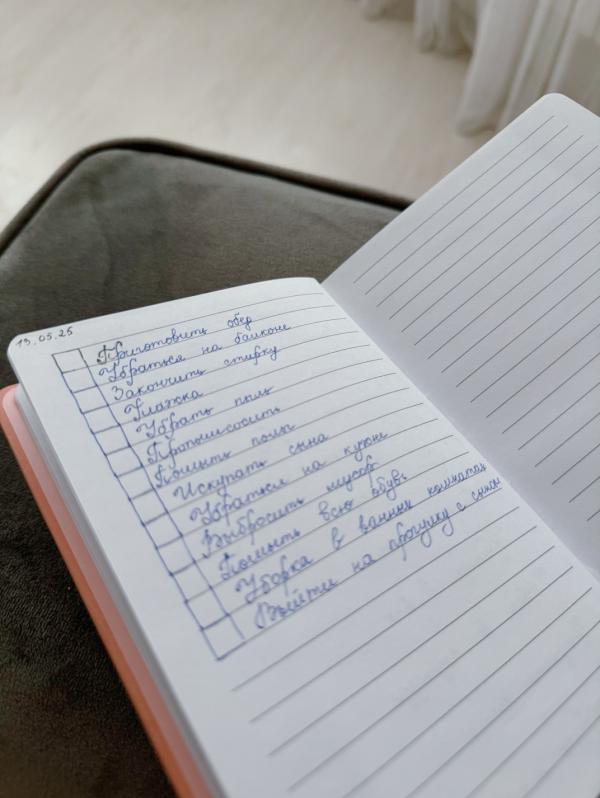 13.05.25
Приготовить обед
Убраться на балконе
Закончить стирку
Глажка
Убрать пыль
Пропылисосить
Помыть полы
Искупать сына
Убраться на кухне
Выбросить мусор
Помыть всю обувь
Уборка в ванных комнатах
Выйти на прогулку с сыном